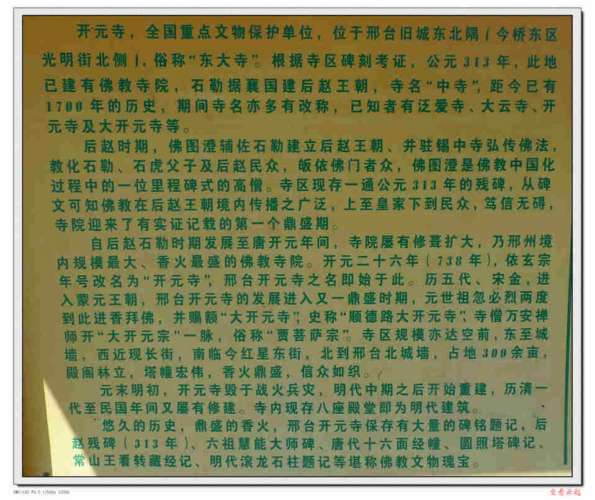 开元寺，全国重点文物保护单位，位于邢台旧城东北隅(今桥东区
光明街北侧)、俗称“东大寺”。根据寺区碑刻考证，公元313年，此地
已建有佛教寺院，石勒据襄国建后赵王朝，寺名“中寺”，距今已有
1700年的历史，期间寺名亦多有改称，已知者有泛爱寺、大云寺、开
元寺及大开元寺等。
后赵时期，佛图澄辅佐石勒建立后赵王朝、并驻锡中寺弘传佛法，
教化石勒、石虎父子及后赵民众，皈依佛门者众，佛图澄是佛教中国化
过程中的一位里程碑式的高僧。寺区现存一通公元313年的残碑，从碑
文可知佛教在后赵王朝境内传播之广泛，上至皇家下到民众，笃信无碍，
寺院迎来了有实证记载的第一个鼎盛期。
自后赵石勒时期发展至唐开元年间，寺院屡有修葺扩大，乃邢州境
内规模最大、香火最盛的佛教寺院。开元二十六年(738年)，依玄宗
年号改名为“开元寺”，邢台开元寺之名即始于此。历五代、宋金，进
入蒙元王朝，邢台开元寺的发展进入又一鼎盛时期，元世祖忽必烈两度
到此进香拜佛，并赐额“大开元寺”，史称“顺德路大开元寺”，寺僧万安禅
师开“大开元宗”一脉，俗称“贾菩萨宗”。寺区规模亦达空前，东至城
墙，西近现长街，南临今红星东街，北到邢台北城墙，占地300余亩，
殿阁林立，塔幢宏伟，香火鼎盛，信众如织。
元末明初，开元寺毁于战火兵灾，明代中期之后开始重建，历清一
代至民国年间又屡有修建。寺内现存八座殿堂即为明代建筑。
悠久的历史，鼎盛的香火，邢台开元寺保存有大量的碑铭题记，后
赵残碑(313年)、六祖慧能大师碑、唐代十六面经幢、圆照塔碑记、
常山王看转藏经记、明代滚龙石柱题记等堪称佛教文物瑰宝。